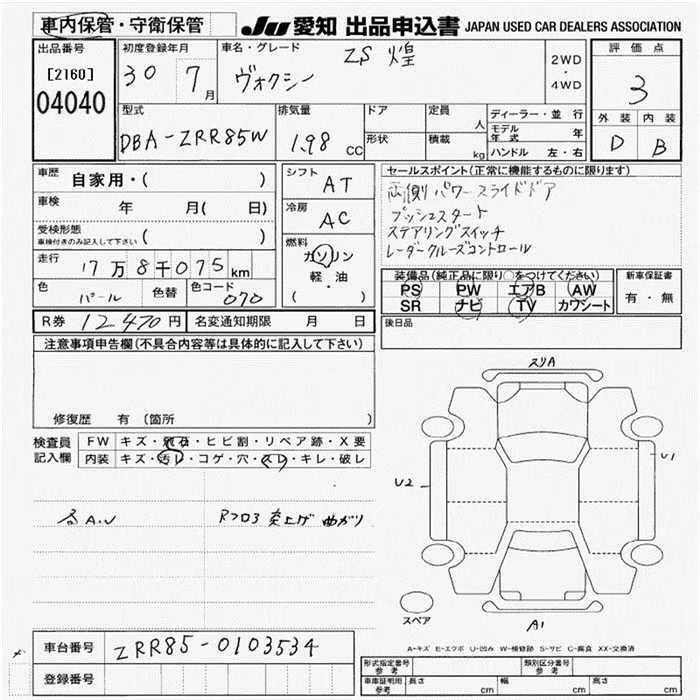 車内保管・守衛保管 JU 愛知 出品申込書 JAPAN USED CAR DEALERS ASSOCIATION
出品番号 初度登録年月 車名・グレード ZS 煌 2WD ・ 4WD 評価点
[2160] 30 7月 ヴォクシー 3
04040
型式 排気量 ドア 定員 人 ディーラー・並行 外装 内装
DBA-ZRR85W 1.98 CC 形状 積載 kg モデル年式 年 D B
ハンドル 左・右
車歴 自家用・( ) シフト AT セールスポイント(正常に機能するものに限ります)
両側パワースライドドア
車検 年 月( 日) 冷房 AC プッシュスタート
受検形態 ( ) ステアリングスイッチ
車検付きのみ記入して下さい レーダークルーズコントロール
走行 17万8千075km 燃料 ガソリン 軽・油 ( )
装備品(純正品に限り○をつけてください) 新車保証書
色 パール 色替 色コード 070 PS PW エアB AW 有・無
SR ナビ TV カワシート
R券 12,470円 名変通知期限 月 日 後日品
注意事項申告欄(不具合内容等は具体的に記入して下さい)
修復歴 有 (箇所 )
検査員記入欄 FW キズ・飛石・ヒビ割・リペア跡・X要
内装 キズ・汚レ・コゲ・穴・スレ・キレ・破レ
スリA
U1
U2
各A.U Rフロア 突上げ 曲がり
スペア
A1
車台番号 ZRR85-0103534
登録番号
A-キズ E-エクボ U-凹み W-補修跡 S-サビ C-腐食 XX-交換済
形式指定番号 参考 類別区分番号 参考
車庫証明用 参考 長さ cm 幅 cm 高さ cm